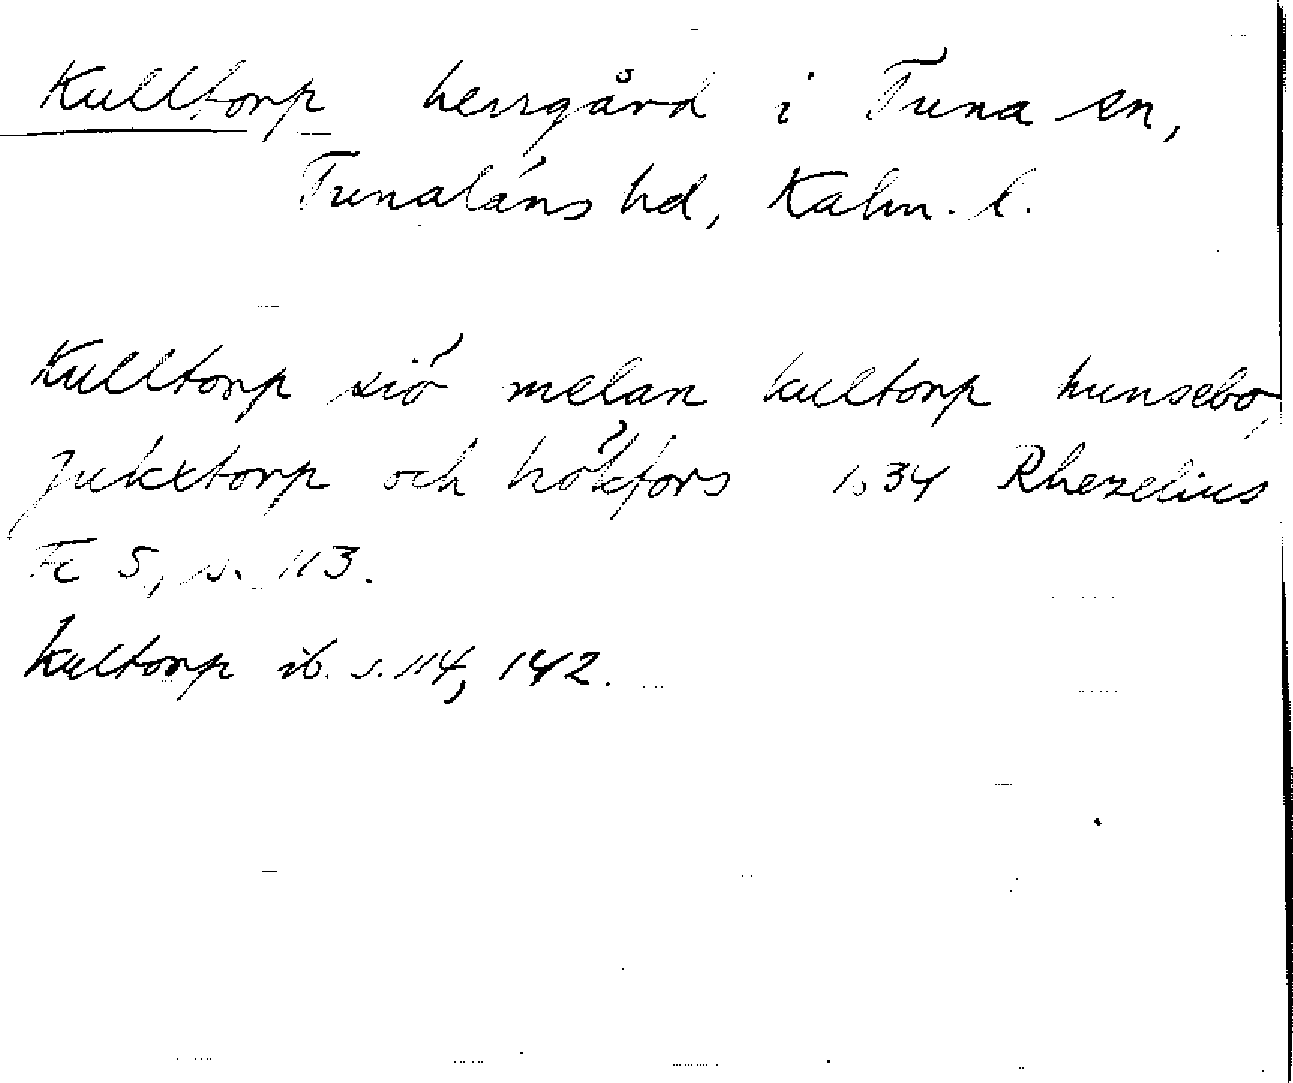 Kulltorp herrgård i Tuna sn,
Tunaläns hd, Kalm. l.
Kulltorp siö melan kultorp hunsebo,
jukxtorp och hökfors 1634 Rhezelius
Fc 5, s. 113.
kultorp ib. s. 114, 142.